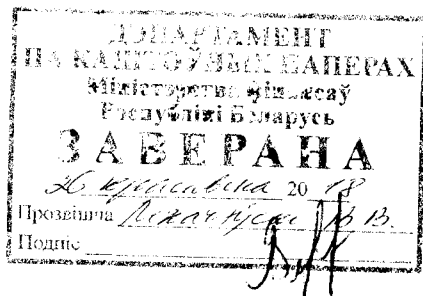 ДЭПАРТАМЕНТ
ПА КАШТОЎНЫХ ПАПЕРАХ
Міністэрства фінансаў
Рэспублікі Беларусь
ЗАВЕРАНА
26 красавіка 20 18
Прозвішча В.В.
Подпіс